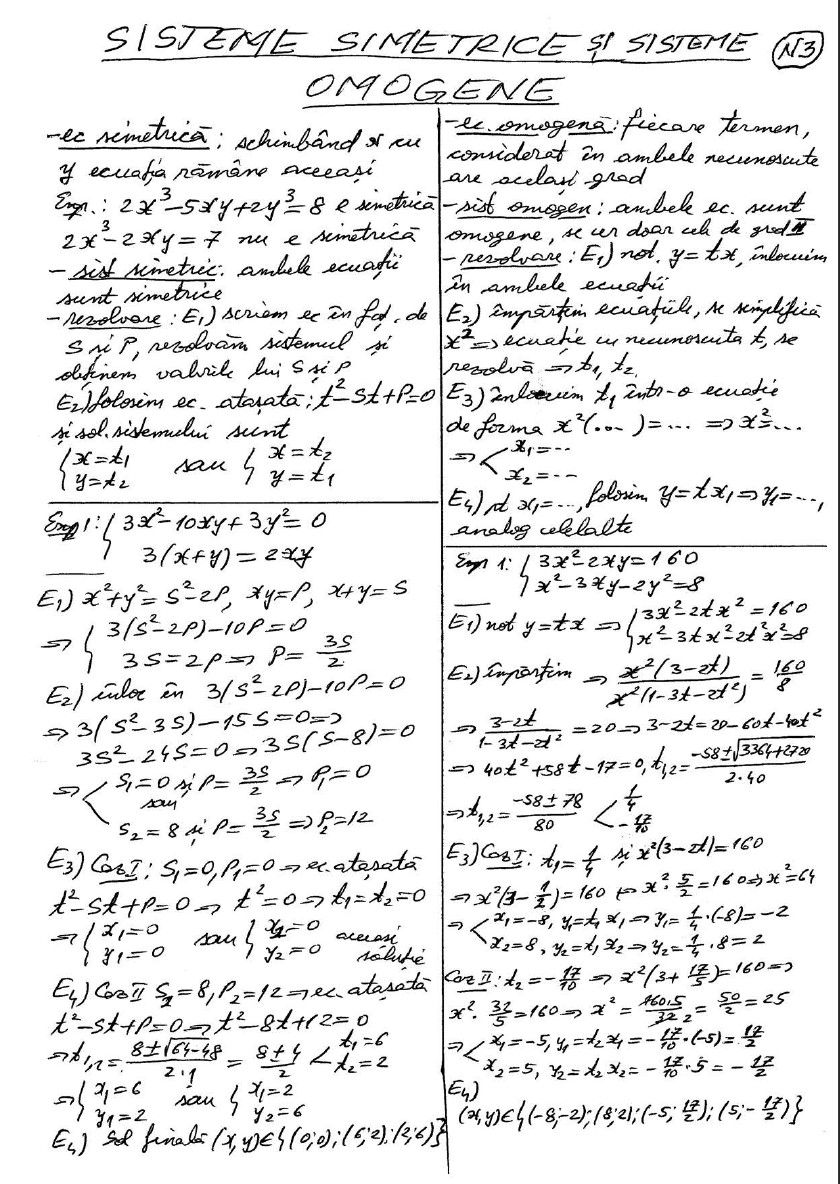 SISTEME SIMETRICE ȘI SISTEME
N3
OMOGENE
-ec simetrică: schimbând x cu
y ecuația rămâne aceeași
Exp.: 2x³-5xy+2y³=8 e simetrică
2x³-2xy=7 nu e simetrică
- sist simetric: ambele ecuații
sunt simetrice
-rezolvare: E₁) scriem ec în fcț. de
S și P, rezolvăm sistemul și
obținem valorile lui S și P
E₂) folosim ec. atașată: t²-St+P=0
și sol. sistemului sunt
{x=t₁ sau {x=t₂
{y=t₂ {y=t₁
Exp 1: {3x²-10xy+3y²=0
3(x+y)=2xy
E₁) x²+y²=S²-2P, xy=P, x+y=S
⇒ {3(S²-2P)-10P=0
3S=2P⇒ P=3S/2
E₂) înloc în 3(S²-2P)-10P=0
⇒3(S²-3S)-15S=0⇒
3S²-24S=0⇒3S(S-8)=0
⇒ S₁=0 și P=3S/2 ⇒ P₁=0
sau
S₂=8 și P=3S/2 ⇒P₂=12
E₃) Caz I: S₁=0, P₁=0 ⇒ ec. atașată
t²-St+P=0 ⇒ t²=0 ⇒ t₁=t₂=0
⇒{x₁=0 sau {x₂=0 aceeași
{y₁=0 {y₂=0 soluție
E₄) Caz II S₂=8, P₂=12 ⇒ ec. atașată
t²-St+P=0 ⇒ t²-8t+12=0
⇒t₁,₂=(8±√(64-48))/(2·1) = (8±4)/2 < t₁=6
t₂=2
⇒{x₁=6 sau {x₁=2
{y₁=2 {y₂=6
E₄) Sol finală (x,y)∈{(0;0);(6;2);(2;6)}
-ec. omogenă: fiecare termen,
considerat în ambele necunoscute
are același grad
-sist omogen: ambele ec. sunt
omogene, se cer doar cele de grad II
-rezolvare: E₁) not. y=tx, înlocuim
în ambele ecuații
E₂) împărțim ecuațiile, se simplifică
x² ⇒ ecuație cu necunoscuta t, se
rezolvă ⇒ t₁, t₂
E₃) înlocuim t₁ într-o ecuație
de forma x²(...)=... ⇒ x²=...
⇒ < x₁=...
x₂=...
E₄) pt x₁=..., folosim y=tx₁ ⇒ y₁=...,
analog celelalte
Exp 1: {3x²-2xy=160
x²-3xy-2y²=8
E₁) not y=tx ⇒ {3x²-2tx²=160
x²-3tx²-2t²x²=8
E₂) împărțim ⇒ x²(3-2t)/x²(1-3t-2t²) = 160/8
⇒ (3-2t)/(1-3t-2t²)=20 ⇒ 3-2t=20-60t-40t²
⇒ 40t²+58t-17=0, t₁,₂=(-58±√(3364+2720))/(2·40)
⇒t₁,₂=(-58±78)/80 < 1/4
-17/10
E₃) Caz I: t₁=1/4 și x²(3-2t)=160
⇒ x²(3-1/2)=160 ⇔ x²·5/2=160⇒x²=64
⇒ < x₁=-8, y₁=t₁x₁ ⇒ y₁=1/4·(-8)=-2
x₂=8, y₂=t₁x₂ ⇒ y₂=1/4·8=2
Caz II: t₂=-17/10 ⇒ x²(3+17/5)=160⇒
x²·32/5=160⇒ x²=160·5/32=50/2=25
⇒ < x₁=-5, y₁=t₂x₁=-17/10·(-5)=17/2
x₂=5, y₂=t₂x₂=-17/10·5=-17/2
E₄)
(x,y)∈{(-8;-2);(8;2);(-5;17/2);(5;-17/2)}